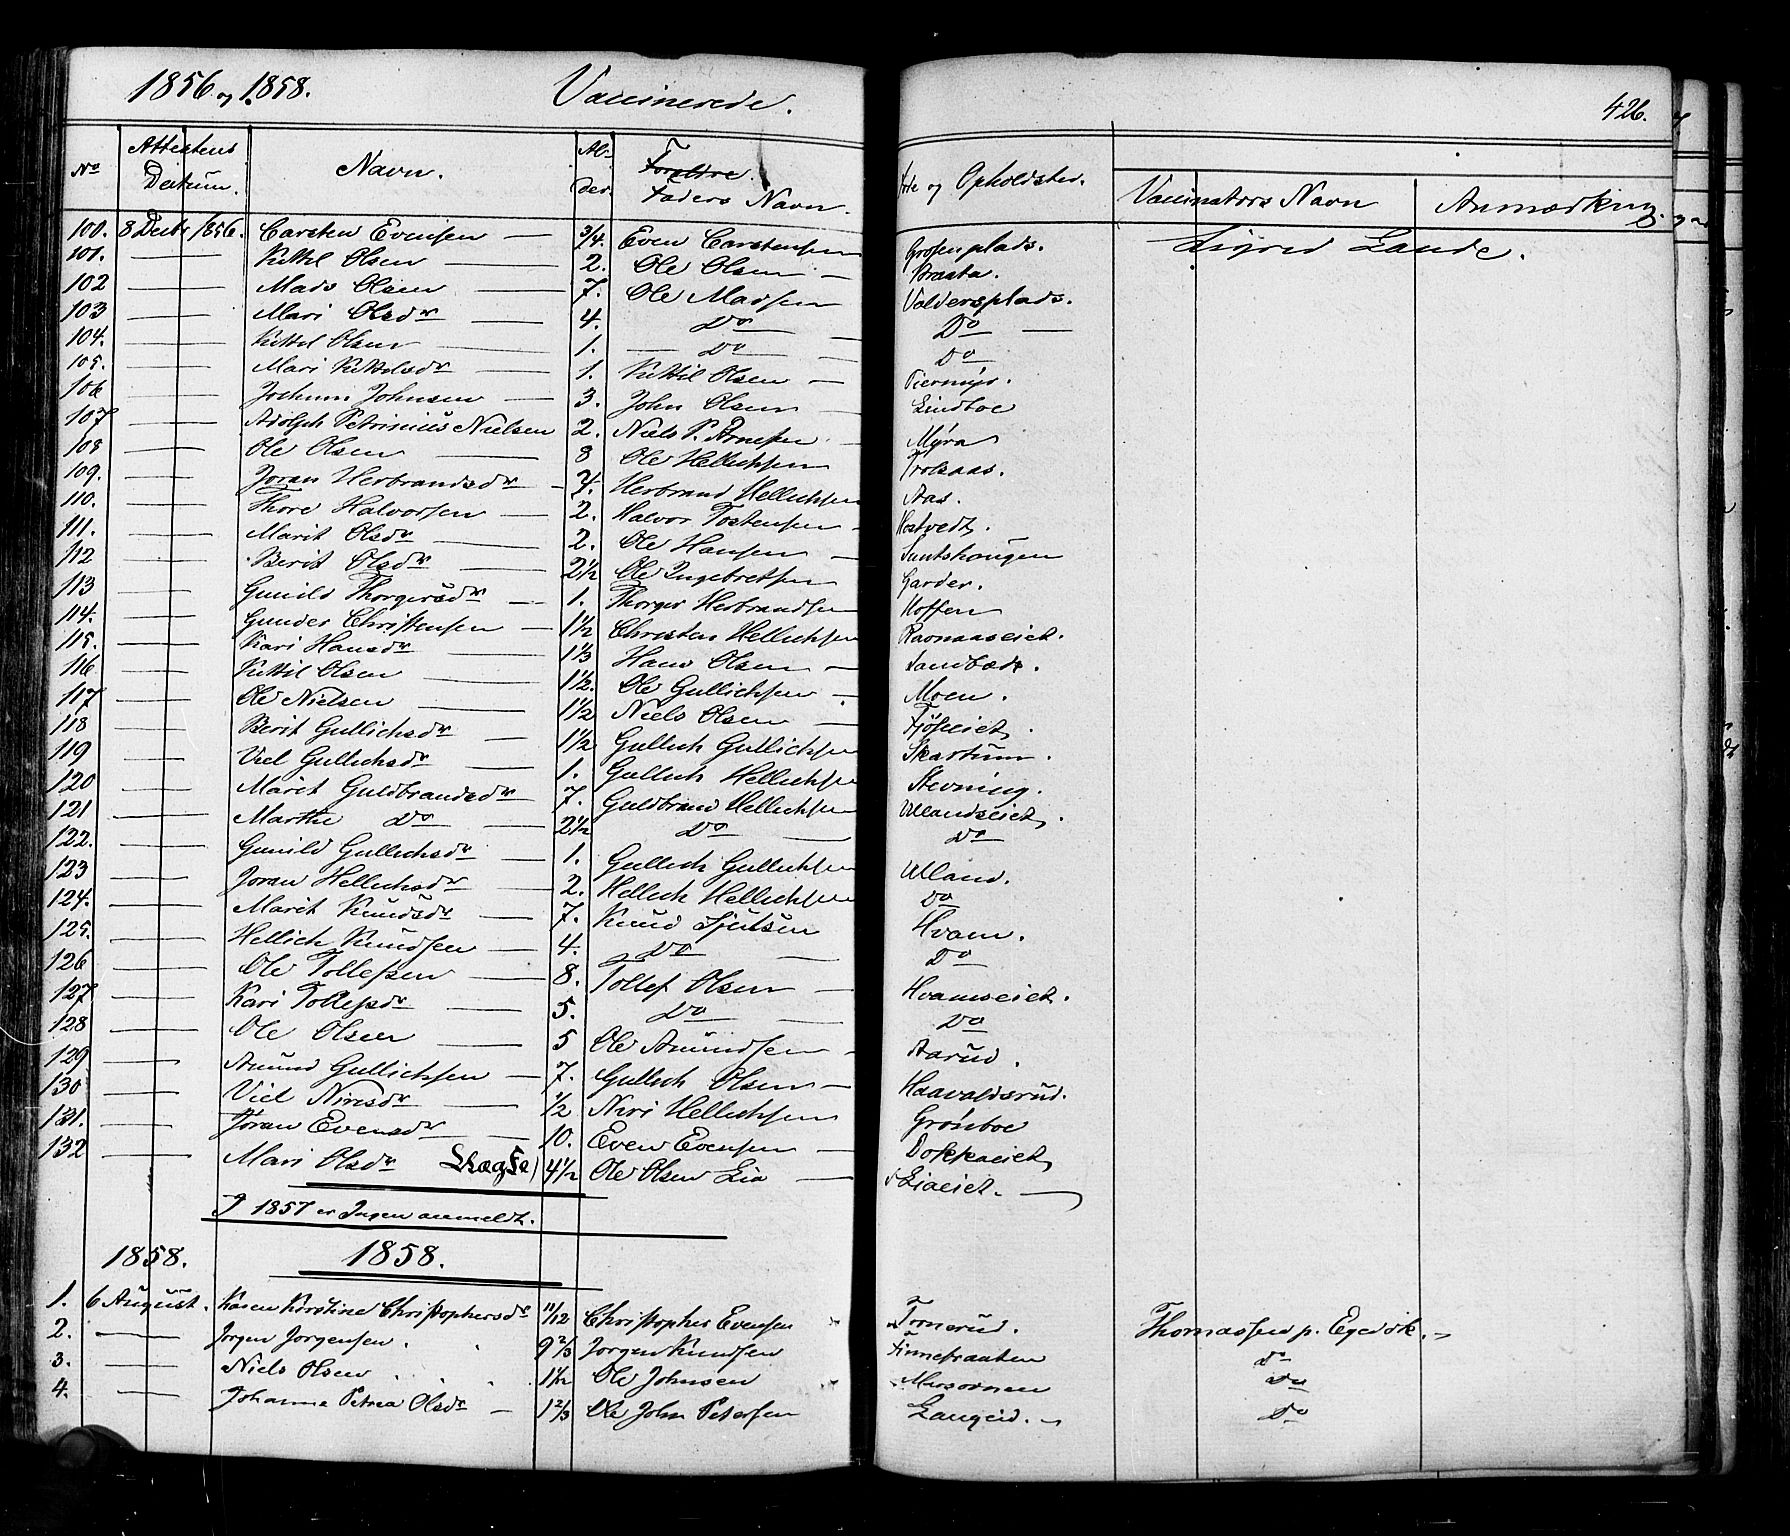 1856 og 1858. Vaccinerede. 426.
No Attestens Datum. Navn. Alder. Forældre. Faders Navn. Føde og Opholdsted. Vaccinators Navn Anmærkning.
100. 8 Decbr 1856. Carsten Evensen — 3/4. Even Carstensen Grosenplads. Sigrid Lande.
101. — Kittil Olsen — 2. Ole Olsen — Braata.
102 — Mads Olsen — 7. Ole Madsen Valdersplads.
103 — Mari Olsdr — 4. Do Do —
104. — Kittil Olsen — 1. — Do — Do
105. — Mari Kittelsdr — 1. Kittil Olsen — Tiermyr.
106 — Jochum Johnsen — 3. John Olsen — Lindboe
107 — Adolph Petrinius Nielsen 2. Niels P. Arnesen. Myra
108 — Ole Olsen — 8 Ole Hellichsen Trolsaas.
109. — Joran Herbrandsdr — 7. Herbrand Hellichsen Aas.
110. — Thore Halvorsen — 2. Halvor Tostensen — Hostvedt.
111. — Marit Olsdr — 2. Ole Hansen —
112 — Berit Olsdr — 2 1/2 Ole Ingebretsen Garder.
113 — Gunild Thorgersdr — 1. Thorger Herbrandsen Hoffen
114. — Gunder Christensen — 1 1/2 Christen Hellichsen Ravnaaseiet.
115. — Kari Hansdr — 1 1/3 Hans Olsen — Sandbæk.
116 — Kittil Olsen — 1 1/2. Ole Gullichsen — Moen.
117 — Ole Nielsen — 1 1/2 Niels Olsen — Fjøseiet.
118 — Berit Gullichsdr — 1 1/2 Gullich Gullichsen Skartum.
119 — Viel Gullichsdr — 1. Gullich Hellichsen Stevning.
120 — Marit Guldbrandsdr 7. Guldbrand Hellichsen Ullandseiet.
121 — Marthe Do — 2 1/2 Do — Do
122. — Gunild Gullichsdr — 1. Gullich Gullichsen Ulland.
123 — Joran Hellichsdr — 2. Hellich Hellichsen Do
124. — Marit Knudsdr — 7. Knud Hvam.
125. — Hellich Knudsen — 4. Do — Do
126 — Ole Tollefsen — 8. Tollef Olsen — Hvamseiet.
127 — Kari Tollefsdr — 5. Do — Do
128 — Ole Olsen — 5 Ole Amundsen — Aarud.
129 — Amund Gullichsen — 7. Gullich Olsen — Haavaldsrud.
130 — Viel Niresdr — 1/2 Niri Hellichsen Grønboe
131. — Jöran Evensdr — 10. Even Evensen — Dokkaeiet
132 — Mari Olsdr 4 1/2 Ole Olsen Lia — Liaeiet. —
I 1857 er Ingen anmeldt.
1858. 1858.
1. 6 August. Karen Kirstine Christophersdr 11/12 Christopher Evensen Tornerud. Thomassen p. Egedik.
2. — Jorgen Jorgensen. 9 2/3 Jorgen Knudsen Finnekraaten do
3. — Niels Olsen 1 1/2 Ole Johnsen do
4. — Johanne Petrea Olsdr — 1 2/3 Ole John Petersen Langeid. Do